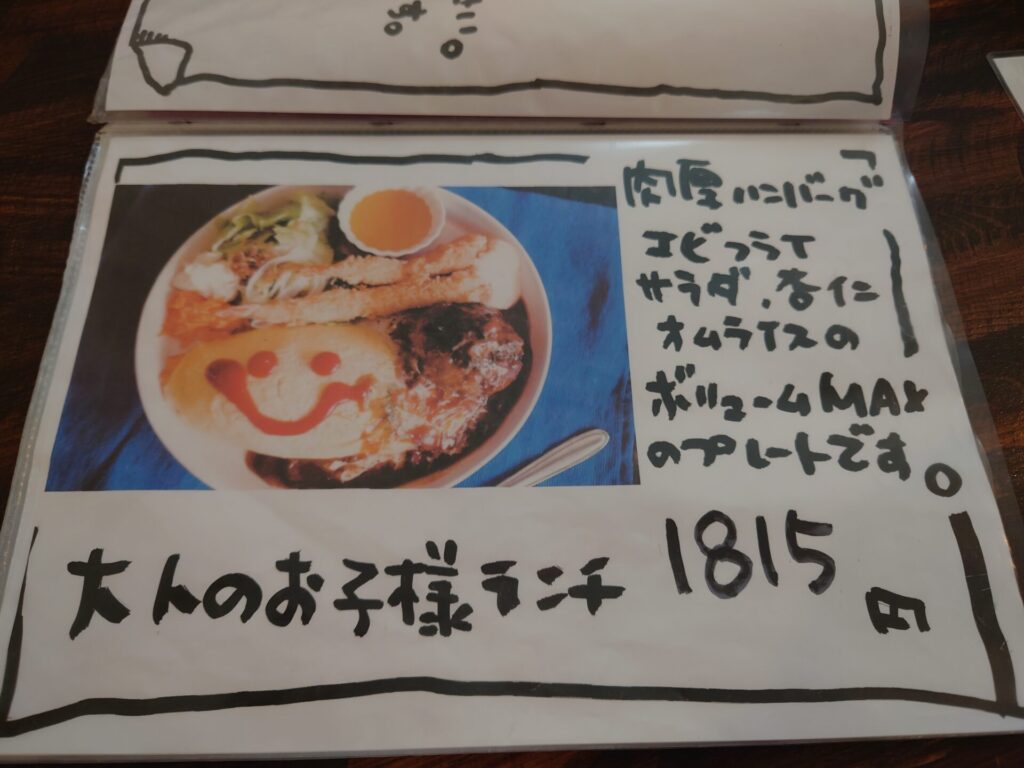 肉厚ハンバーグ
エビフライ
サラダ、杏仁
オムライスの
ボリュームMAX
のプレートです。
大人のお子様ランチ 1815円